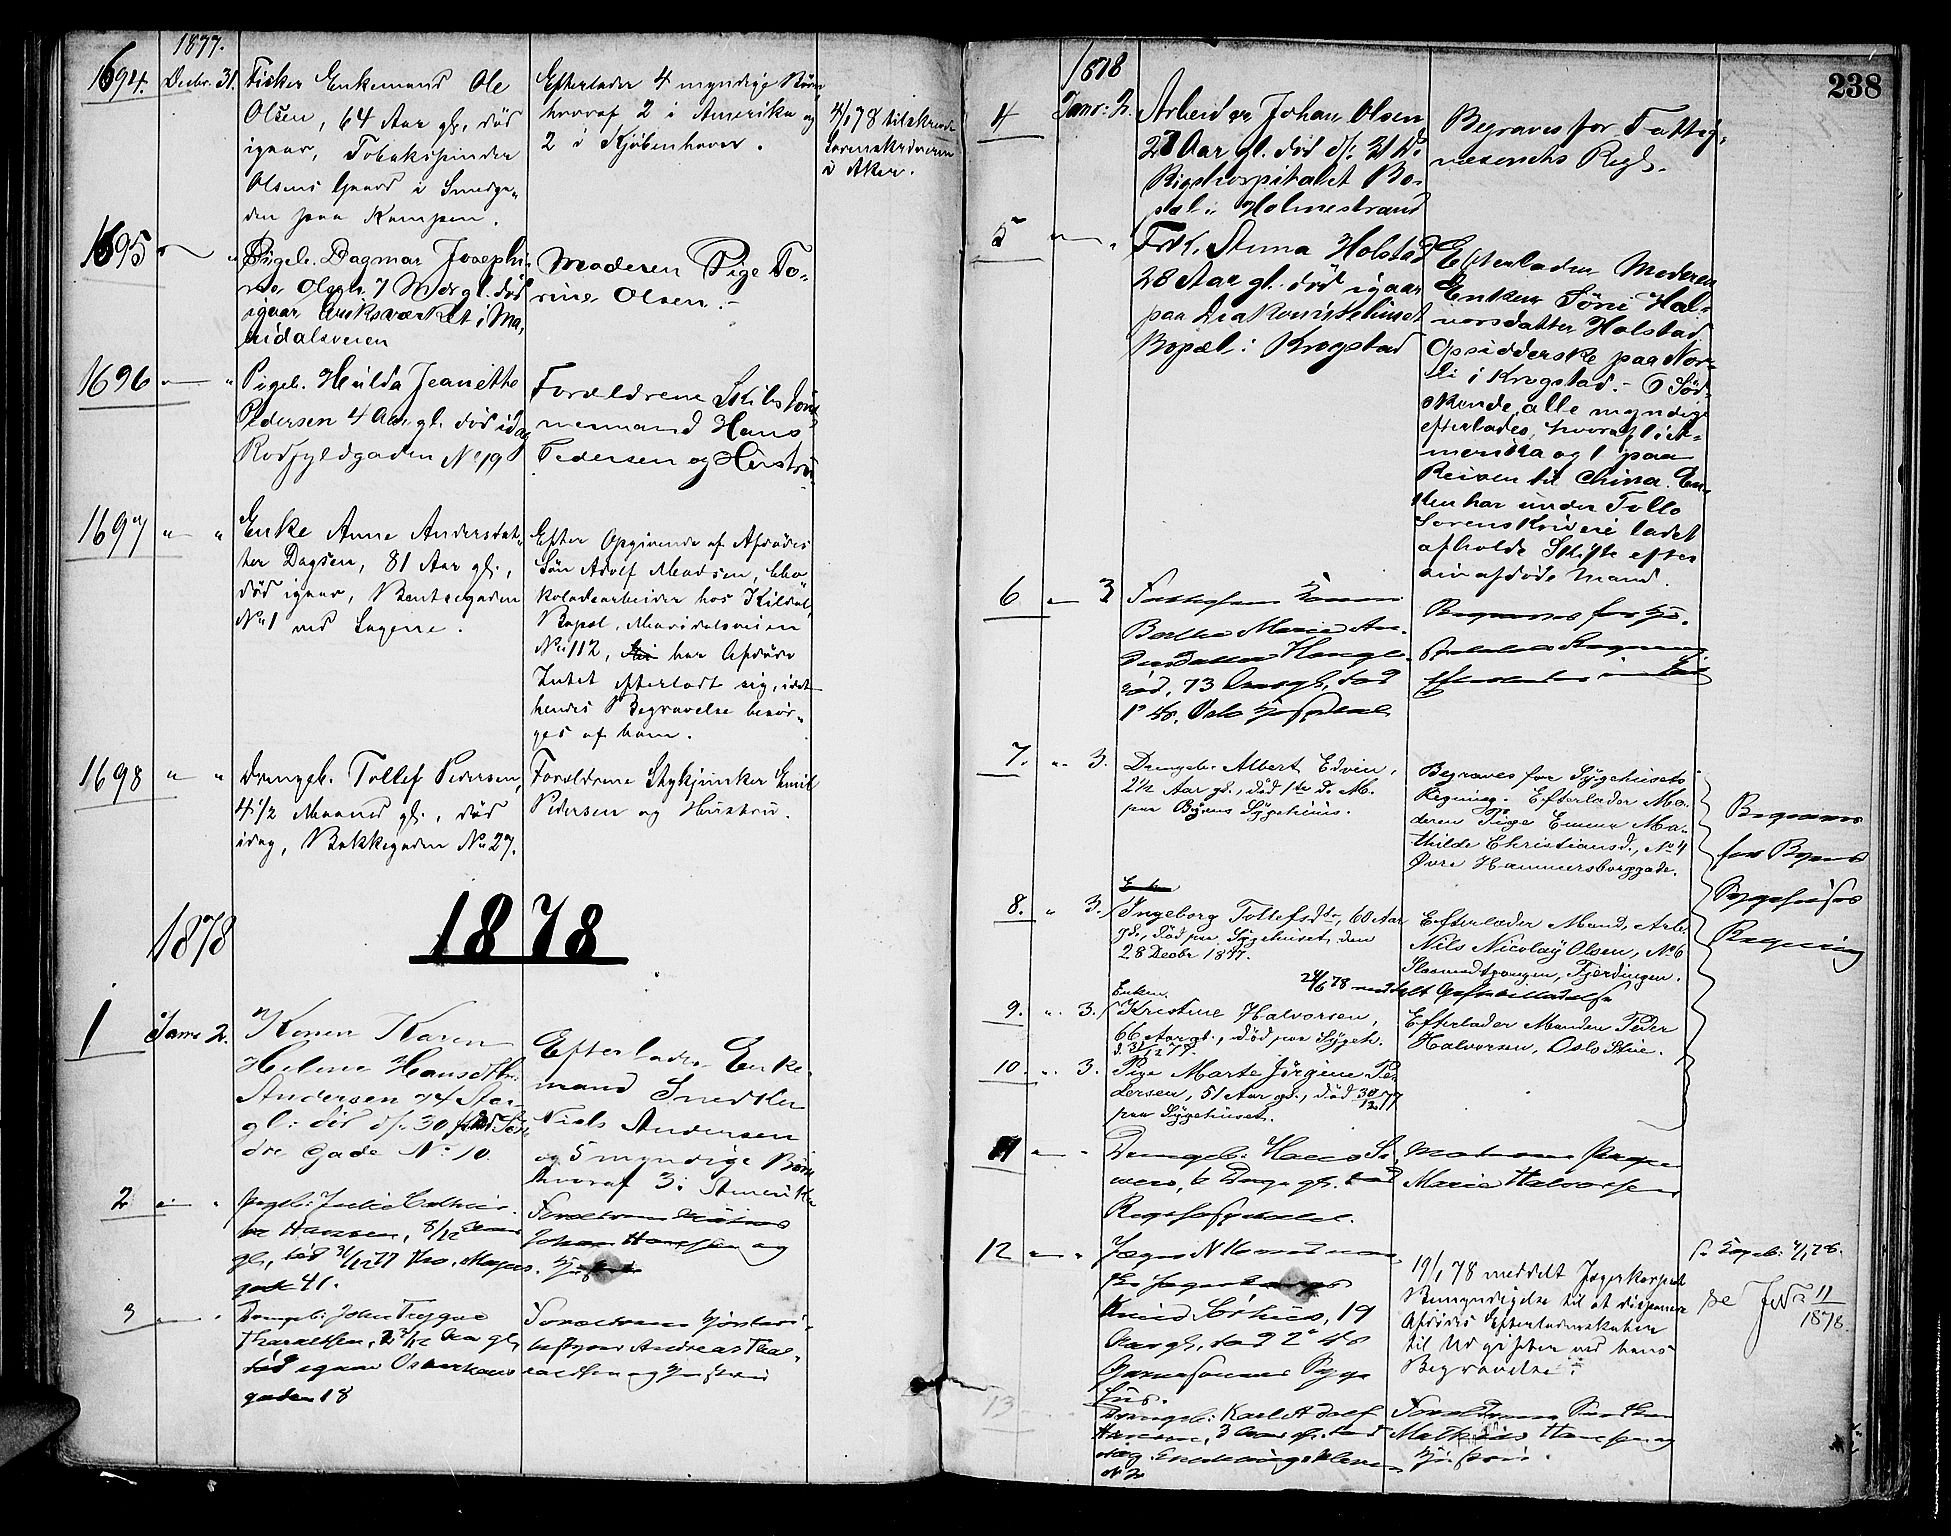 1877.
1694. Decbr. 31. Fisker Enkemand Ole
Olsen, 64 Aar gl., död
igaar, Tobakspinder
Olsens Gaard i Smedga-
den paa Kampen.
Efterlader 4 myndige Börn
hvoraf 2 i Amerika og
2 i Kjöbenhavn.
4/1 78 tilskrevet
Sorenskriveren
i Aker.
1695 — " Pigeb. Dagmar Josephi-
ne Olsen 7 Mdr gl. död
igaar i Ma-
ridalsveien
Moderen Pige To-
rine Olsen.
1696 — " Pigeb. Hulda Jeanette
Pedersen 4 Aar gl. död idag
Rodfyldgaden No 19
Forældrene Skibstöm-
mermand Hans
Pedersen og Hustru
1697 " — " Enke Anne Andersdat-
ter Dagsen, 81 Aar gl.,
död igaar, Bentsegaden
No 1 ved Sagene.
Efter Opgivende af Afdödes
Sön Adolf Madsen, Cho-
koladearbeider hos Kildal,
Bopæl, Maridalsveien
No 112, har Afdöde
Intet efterladt sig, idet
hendes Begravelse besör-
ges af ham.
1698 " " Drengeb. Tollef Pedersen,
4 1/2 Maaned gl., död
idag, Bakkegaden No 27.
Forældrene Skykjusker Emil
Pedersen og Hustru.
1878
1878
1 Janr 2. Konen Karen
Helene Hansdtr.
Andersen 74 Aar
gl. död d/. 30
dre Gade No 10.
Efterlader Enke-
mand Snedker
Niels Andersen
og 5 myndige Börn
hvoraf 3 i Amerika
2 — " Pigeb: Julie Cathri-
ne Hansen, 8/12 Aar
gl., död 31/12 77
gade 41.
Forældrene
Johan Hansen og
Hustru
3 — " Drengeb: John Trygve
Tharaldsen, 2 Aar gl.
död igaar Osterhaus
gaden 18
Forældrene
bestyrer Andreas Thar-
aldsen og Hustru
238
1878
4 Janr: 2. Arbeider Johan Olsen
27 Aar gl. död d/. 31 D.
Rigshospitalet Bo-
pæl i Holmestrand
Begraves for Fattig-
væsenets Regl.
5 — " Frk. Stina Holstad
28 Aar gl. död igaar
paa Diakonissehuset
Bopæl i Krogstad
Efterlader Moderen
Enken Söni Hal-
vorsdatter Holstad
Opsidderske paa Nor-
li i Krogstad. 6 Söd-
skende, alle myndige
efterlades, hvoraf 1 i A-
merika og 1 paa
Reisen til China. En-
ken har under Follo
Sorenskriveri ladet
afholde Skifte efter
sin afdöde Mand.
6 — 3
Berthe Marie An-
dersdatter
död, 73 Aar gl., död
1ste ds. Oslo Hospital
7. " 3. Drengeb. Albert Edvin,
2 1/2 Aar gl., död 1ste D. M.
paa Byens Sygehuus.
Begraves for Sygehusets
Regning. Efterlader Mo-
deren Pige Emma Ma-
thilde Christiansd., No 4
Øvre Hammersborggade.
Begraves
for Byens
Sygehuses
Regning
8. " 3. Ingeborg Tollefsdtr, 60 Aar
gl., död paa Sygehuset den
28 Decbr 1877.
Efterlader Mand, Arb.
Nils Nicolay Olsen, No 6
Slamodtrangen, Fjerdingen.
24/6 78 meddelt
9. " 3. Enken
Kristine Halvorsen,
66 Aar gl., död paa Sygeh.
d. 31/12 77.
Efterlader Manden Peder
Halvorsen, Oslo
10. " 3. Pige Marte Jörgine Pe-
dersen, 51 Aar gl., död 30/12 77
paa Sygehuset.
11 — " Drengeb: Hans
6 Dage gl. död
Rigshospitalet.
Moderen Pige
Marie Halvorsen
12 — " Jæger No
Knud Sörhus, 19
Aar gl., död 2 ds
Garnisonens Syge
hus.
19/1 78 meddelt Jægerkorpset
Bemyndigelse til at disponere
Afdödes Efterladenskaber
til Udgiften ved hans
Begravelse.
se Kopib. 4/1 78.
se Jno 11/1878.
13 Drengeb: Karl Adolf
Hansen, 3 Aar gl. död
idag
No
Forældrene
Mathias Hansen og
Hustru.